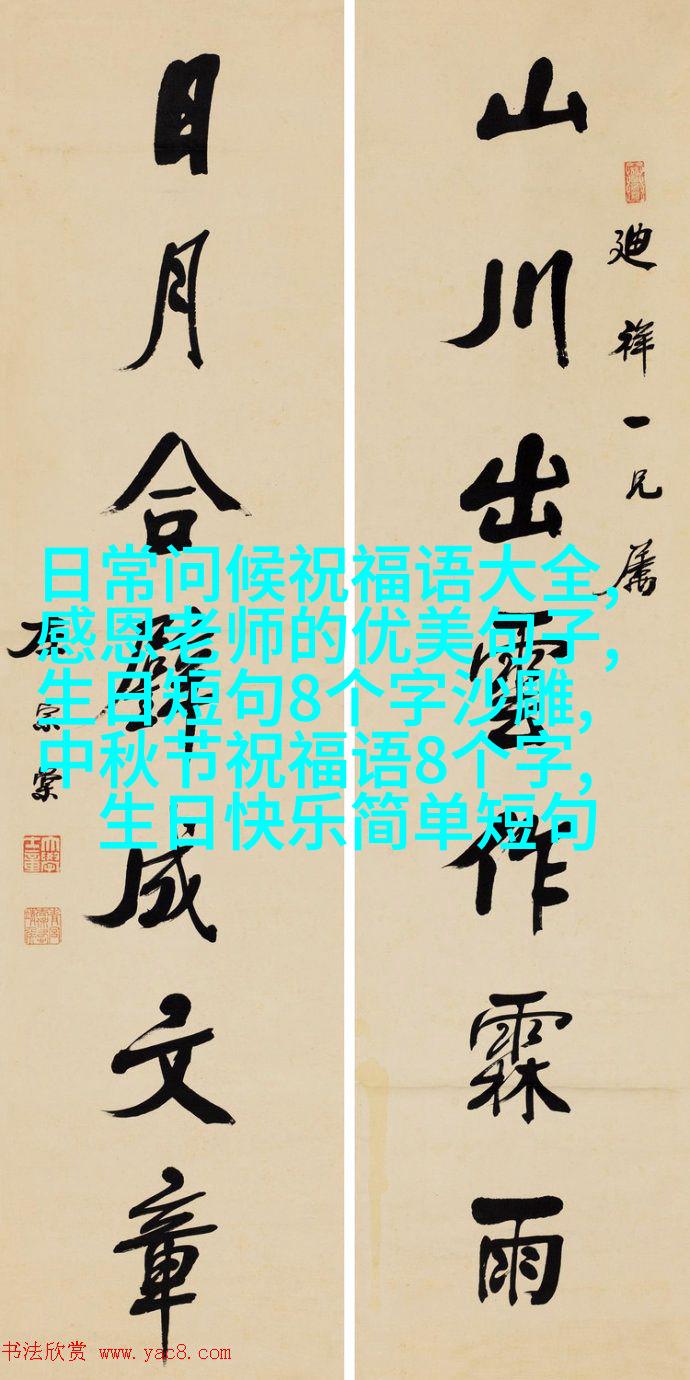 廸祥一兄屬
山川出雲作霖雨
日月合璧成文章
左宗棠
日常问候祝福语大全,
感恩老师的优美句子,
生日短句8个字沙雕,
中秋节祝福语8个字,
生日快乐简单短句
书法欣赏 www.yac8.com